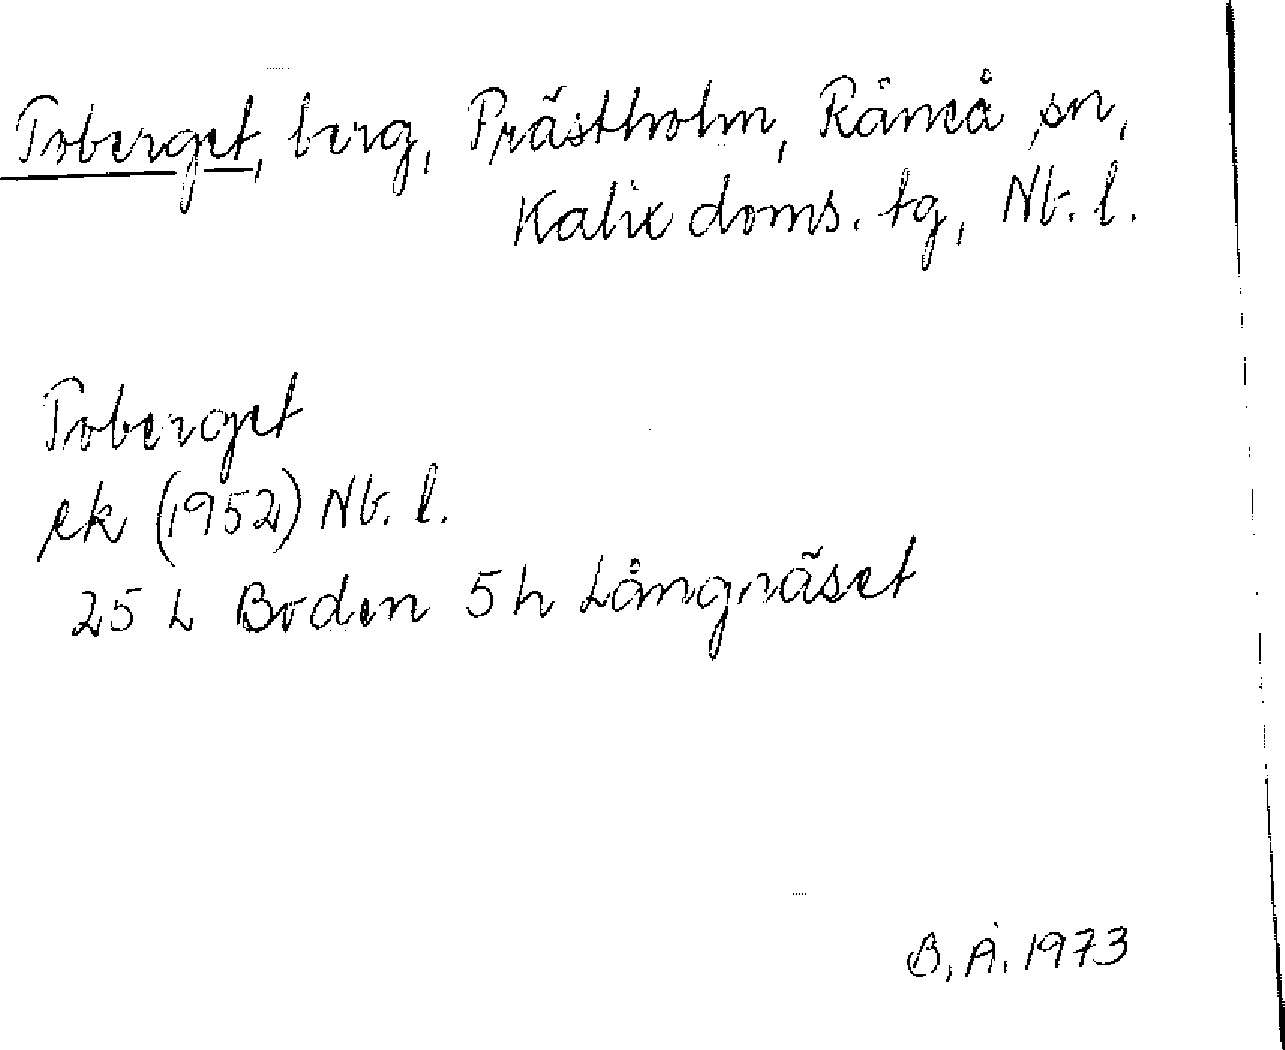 Toberget, berg, Prästholm, Råneå sn,
Kalix doms. tg, Nb. l.
Toberget
ek (1952) Nb. l.
25 L Boden 5 h Långnäset
B. Å. 1973